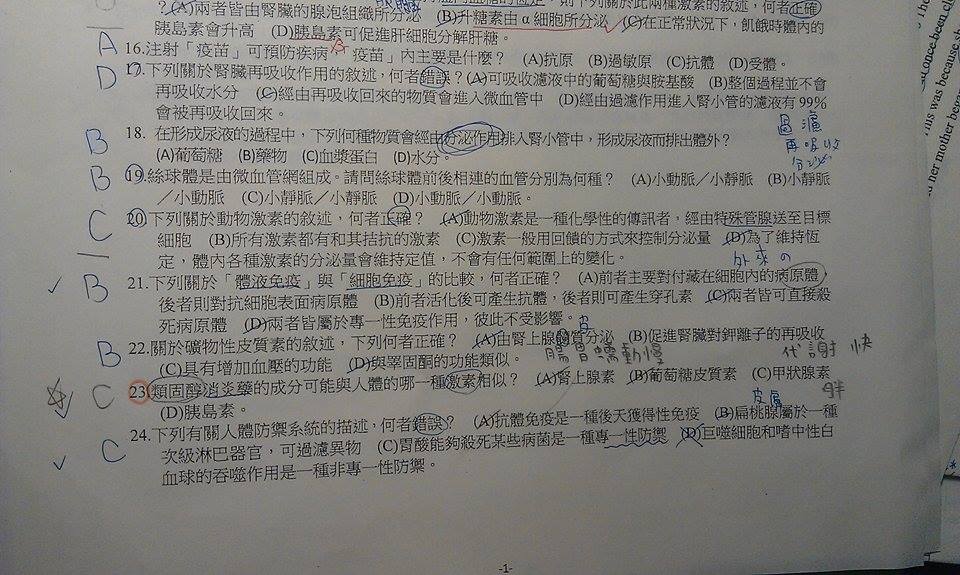 兩者皆由腎臟的腺泡組織所分泌 (B)升糖素由α細胞所分泌 (C)在正常狀況下,飢餓時體內的
胰島素會升高 (D)胰島素可促進肝細胞分解肝糖。
A 16.注射「疫苗」可預防疾病,疫苗」內主要是什麼? (A)抗原 (B)過敏原 (C)抗體 (D)受體。
D 17.下列關於腎臟再吸收作用的敘述,何者錯誤? (A)可吸收濾液中的葡萄糖與胺基酸 (B)整個過程並不會
再吸收水分 (C)經由再吸收回來的物質會進入微血管中 (D)經由過濾作用進入腎小管的濾液有99%
會被再吸收回來。
過濾
再吸收
分泌
B 18. 在形成尿液的過程中,下列何種物質會經由分泌作用排入腎小管中,形成尿液而排出體外?
(A)葡萄糖 (B)藥物 (C)血漿蛋白 (D)水分。
B 19.絲球體是由微血管網組成。請問絲球體前後相連的血管分別為何種? (A)小動脈/小靜脈 (B)小靜脈
/小動脈 (C)小靜脈/小靜脈 (D)小動脈/小動脈。
C 20.下列關於動物激素的敘述,何者正確? (A)動物激素是一種化學性的傳訊者,經由特殊管腺送至目標
細胞 (B)所有激素都有和其拮抗的激素 (C)激素一般用回饋的方式來控制分泌量 (D)為了維持恆
定,體內各種激素的分泌量會維持定值,不會有任何範圍上的變化。
外來の
B 21.下列關於「體液免疫」與「細胞免疫」的比較,何者正確? (A)前者主要對付藏在細胞內的病原體,
後者則對抗細胞表面病原體 (B)前者活化後可產生抗體,後者則可產生穿孔素 (C)兩者皆可直接殺
死病原體 (D)兩者皆屬於專一性免疫作用,彼此不受影響。
皮
B 22.關於礦物性皮質素的敘述,下列何者正確? (A)由腎上腺髓質分泌 (B)促進腎臟對鉀離子的再吸收
(C)具有增加血壓的功能 (D)與睪固酮的功能類似。
腸胃蠕動慢 代謝快
C 23.類固醇消炎藥的成分可能與人體的哪一種激素相似? (A)腎上腺素 (B)葡萄糖皮質素 (C)甲狀腺素
(D)胰島素。
皮膚 胖
C 24.下列有關人體防禦系統的描述,何者錯誤? (A)抗體免疫是一種後天獲得性免疫 (B)扁桃腺屬於一種
次級淋巴器官,可過濾異物 (C)胃酸能夠殺死某些病菌是一種專一性防禦 (D)巨噬細胞和嗜中性白
血球的吞噬作用是一種非專一性防禦。
-1-